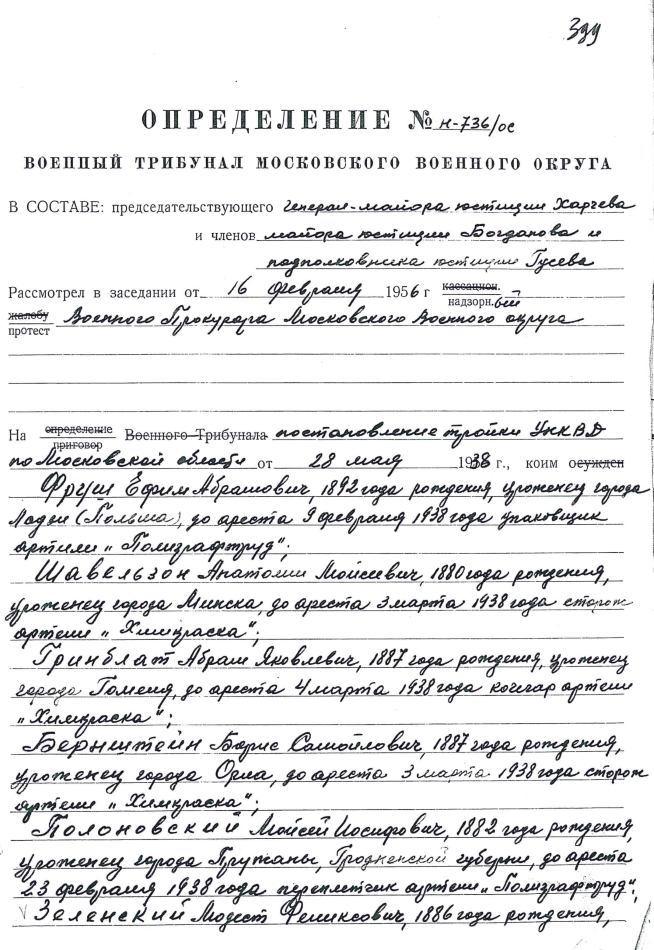 399
ОПРЕДЕЛЕНИЕ № н-736/ос
ВОЕННЫЙ ТРИБУНАЛ МОСКОВСКОГО ВОЕННОГО ОКРУГА
В СОСТАВЕ: председательствующего генерал-майора юстиции Харчева
и членов майора юстиции Богданова и
подполковника юстиции Гусева
Рассмотрел в заседании от 16 февраля 1956 г кассацион.
надзорн.ый
жалобу
протест Военного Прокурора Московского Военного округа
На определение
приговор Военного Трибунала постановление тройки УНКВД
по Московской области от 28 мая 1938 г., коим осужден
Фруш Ефим Абрамович, 1892 года рождения, уроженец города
Лодзи (Польша), до ареста 9 февраля 1938 года упаковщик
артели „Полиграфтруд";
Шавельзон Анатолий Моисеевич, 1880 года рождения,
уроженец города Минска, до ареста 3 марта 1938 года сторож
артели „Химкраска";
Гринблат Абрам Яковлевич, 1887 года рождения, уроженец
города Гомеля, до ареста 4 марта 1938 года кочегар артели
„Химкраска";
Бернштейн Борис Самойлович, 1887 года рождения,
уроженец города Орла, до ареста 3 марта 1938 года сторож
артели „Химкраска";
Полоновский Мойсей Иосифович, 1882 года рождения,
уроженец города Пружаны, Гродненской губерни, до ареста
23 февраля 1938 года переплетчик артели „Полиграфтруд";
Зеленский Модест Феликсович, 1886 года рождения,